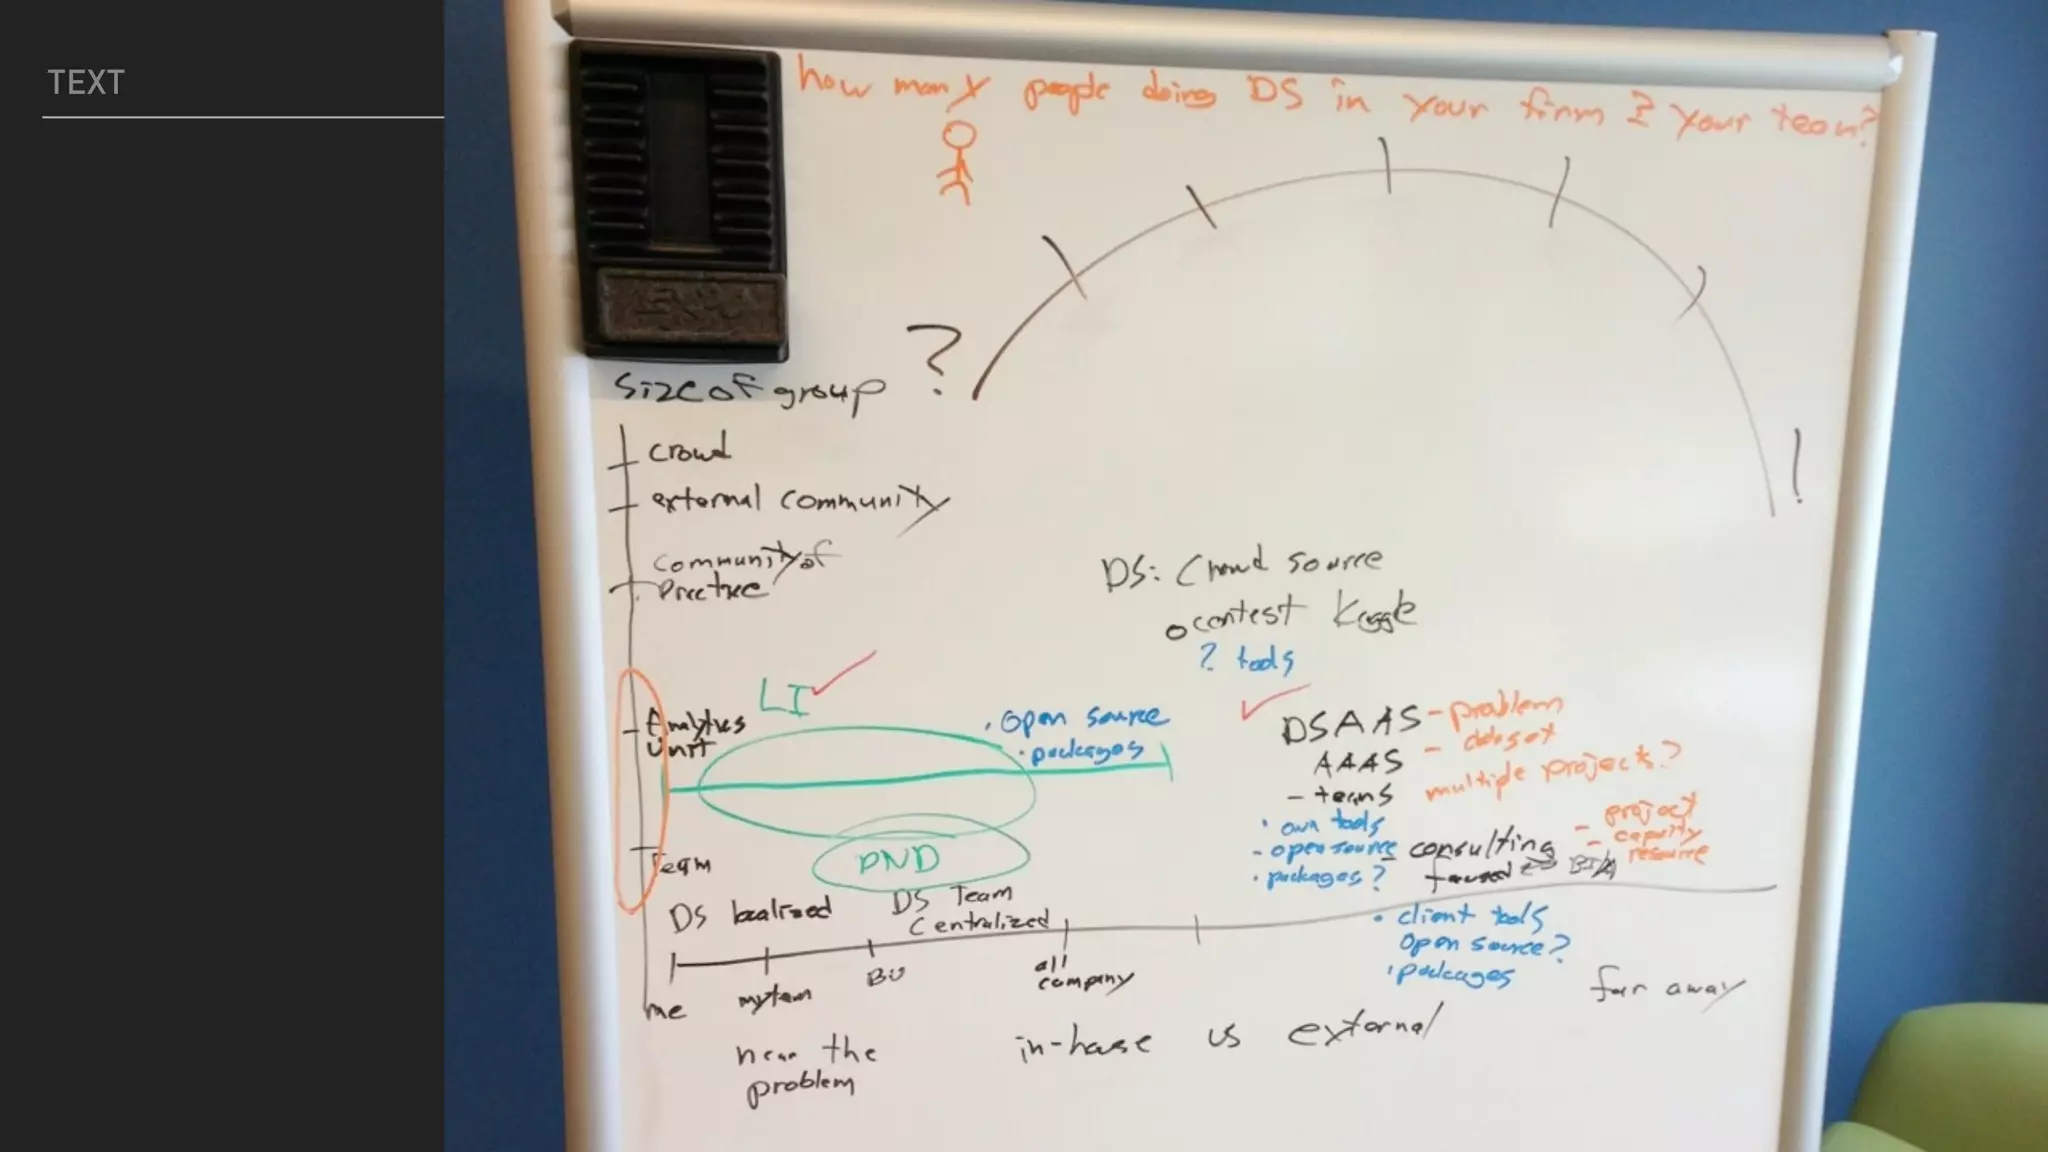 TEXT
how many people doing DS in your firm ? your team?
?
size of group
crowd
external community
community of
Practice
!
DS: Crowd source
contest Kaggle
? tools
LI
Analytics
Unit
• open source
• packages
DSAAS - problem
- dataset
AAAS
multiple projects?
- teams
• own tools
- open source
• packages?
consulting
focused
- project
- capacity
resource
PND
Team
DS localized
DS Team
Centralized
• client tools
open source?
• packages
me
my team
BU
all
company
far away
near the
problem
in-house vs external